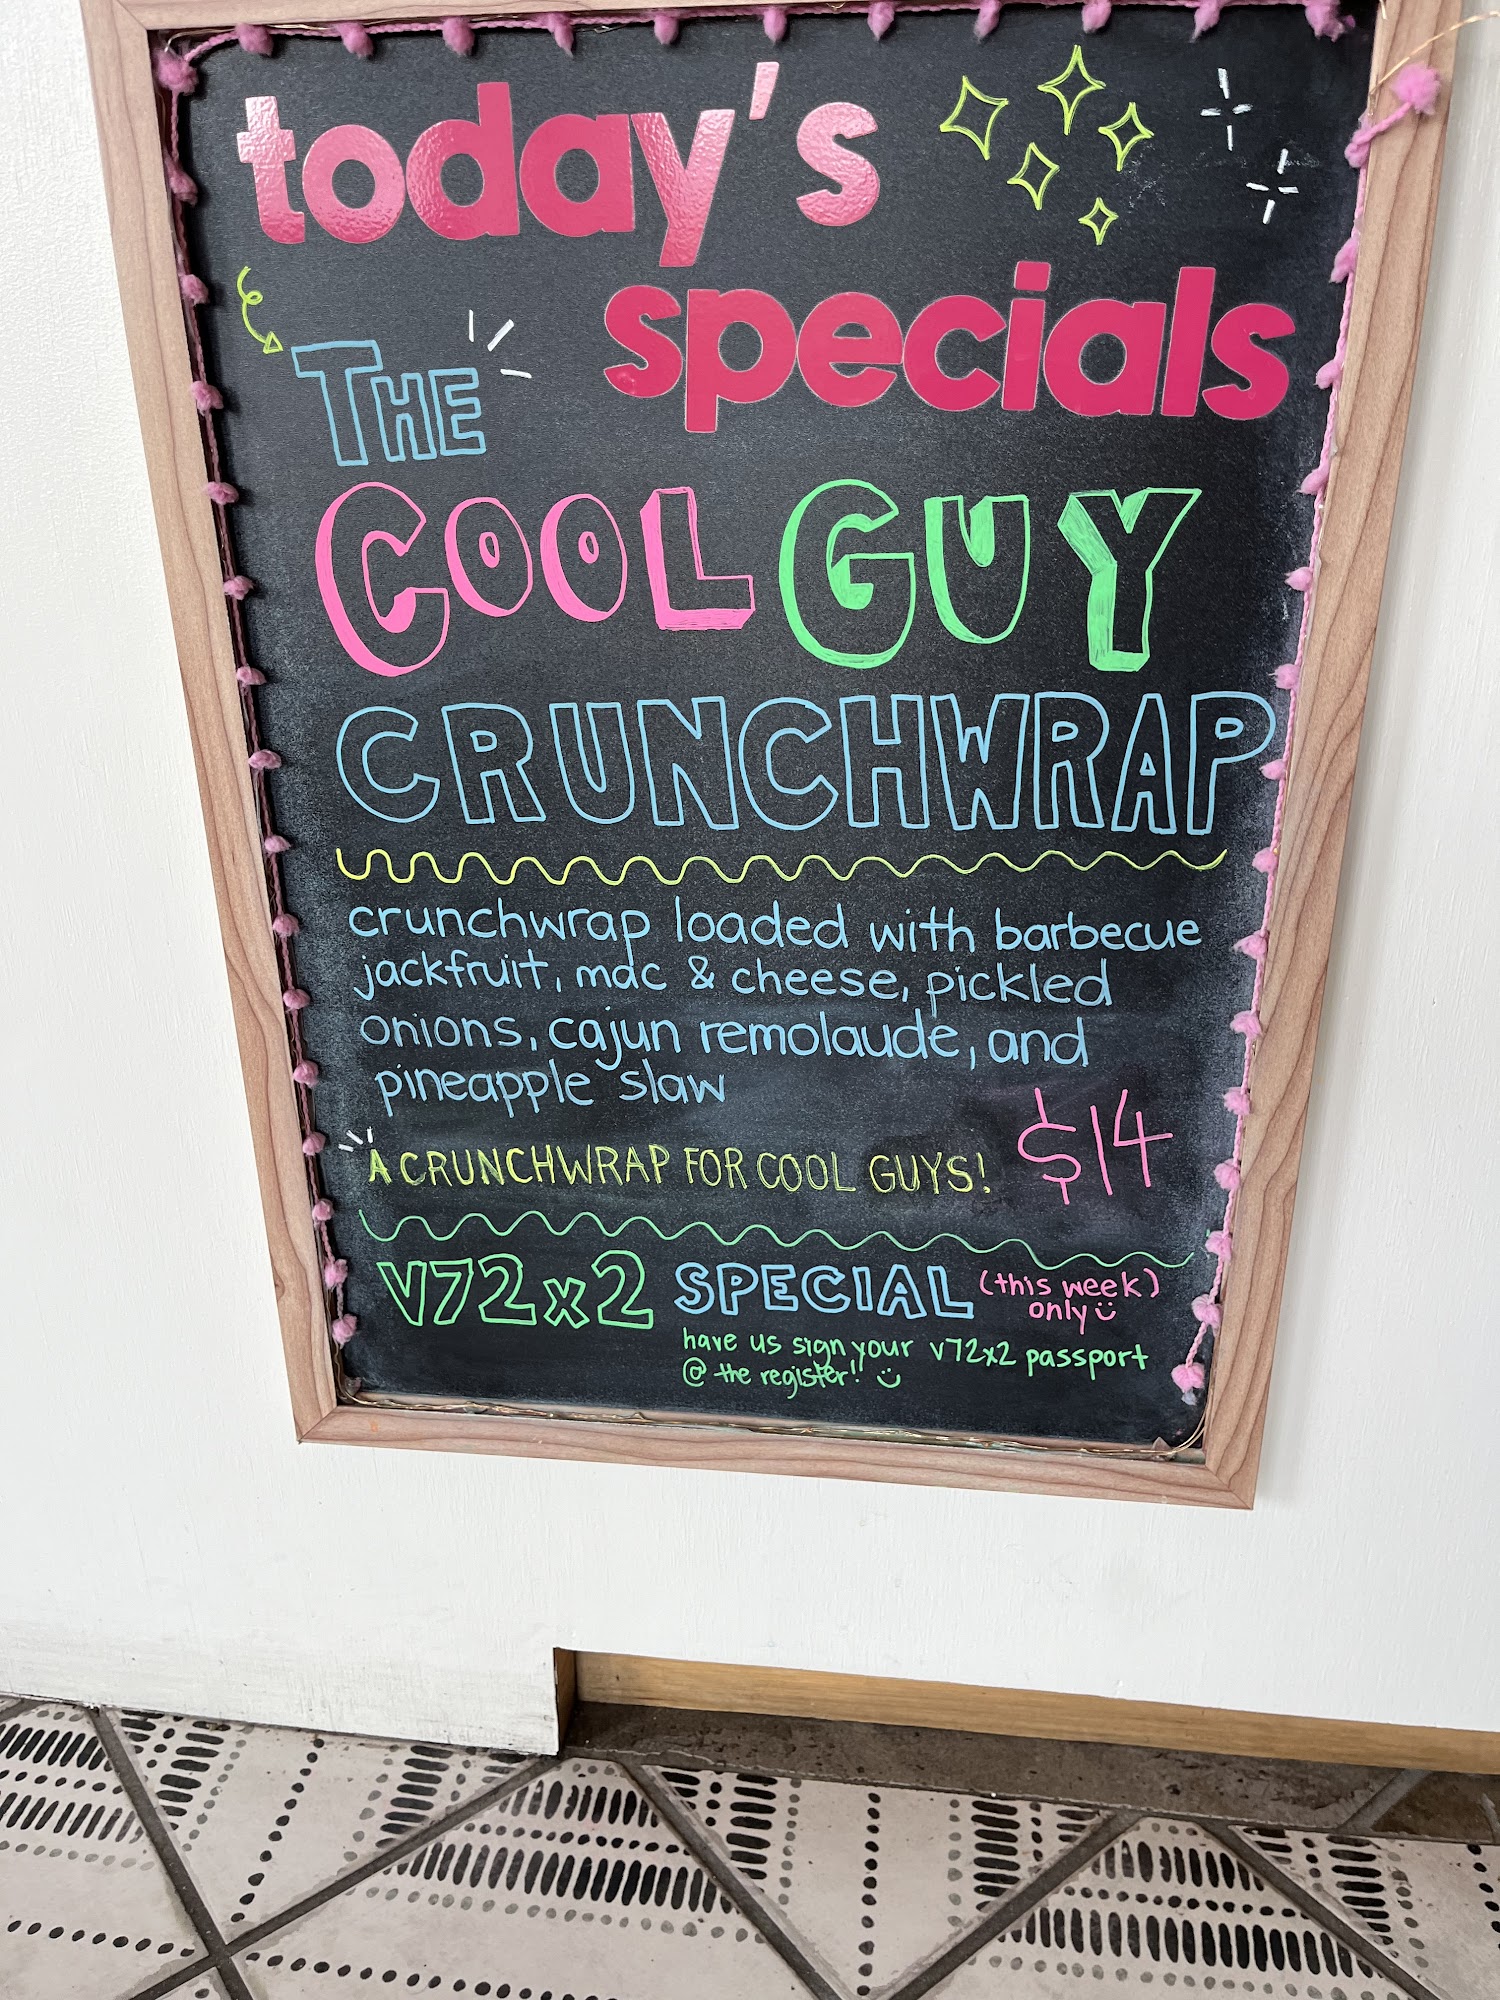 today's
specials
THE
COOL GUY
CRUNCHWRAP
crunchwrap loaded with barbecue
jackfruit, mac & cheese, pickled
onions, cajun remolaude, and
pineapple slaw
A CRUNCHWRAP FOR COOL GUYS! $14
V72x2 SPECIAL (this week)
only
have us sign your v72x2 passport
@ the register!